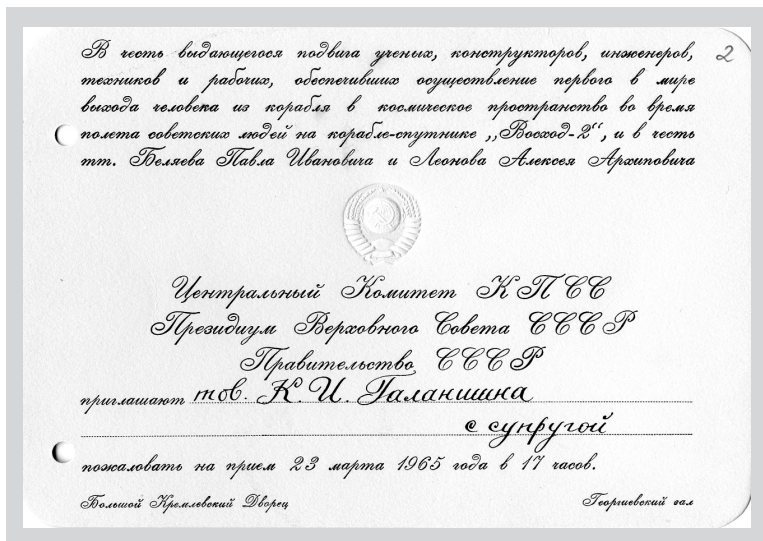 2
В честь выдающегося подвига ученых, конструкторов, инженеров,
техников и рабочих, обеспечивших осуществление первого в мире
выхода человека из корабля в космическое пространство во время
полета советских людей на корабле-спутнике „Восход-2“, и в честь
тт. Беляева Павла Ивановича и Леонова Алексея Архиповича
Центральный Комитет КПСС
Президиум Верховного Совета СССР
Правительство СССР
приглашают тов. К. И. Галаншина
с супругой
пожаловать на прием 23 марта 1965 года в 17 часов.
Большой Кремлевский Дворец Георгиевский зал